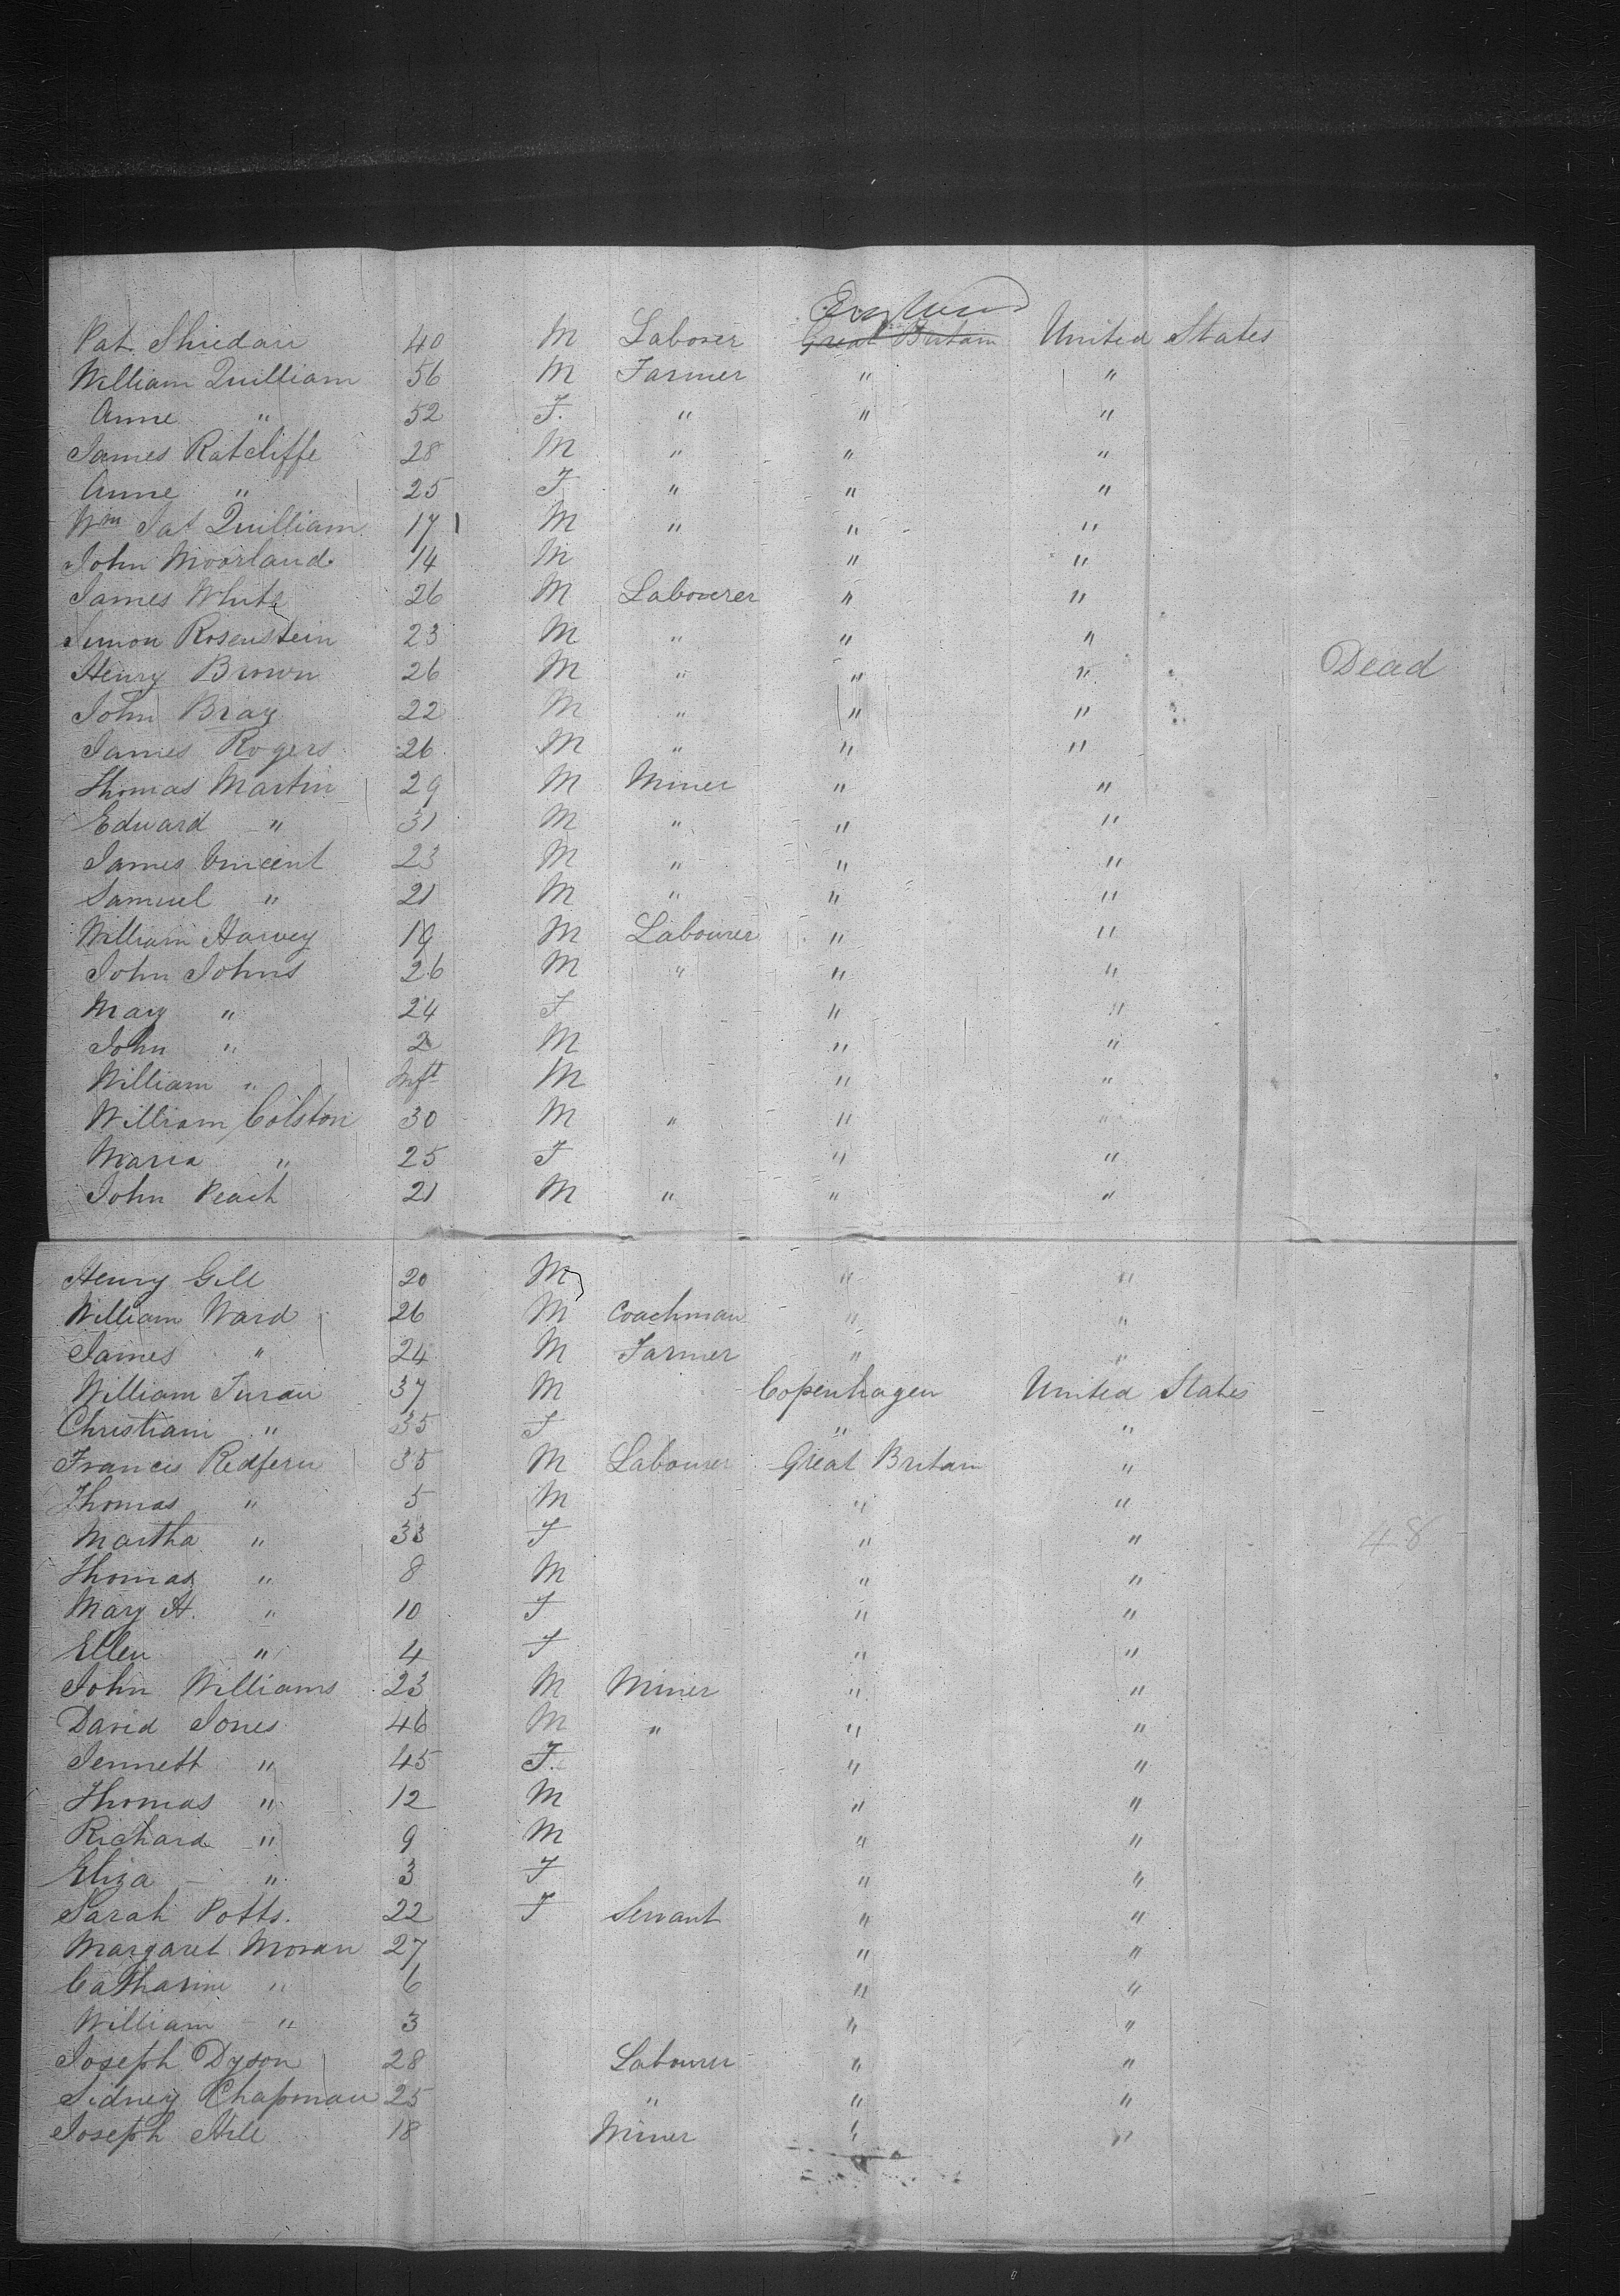 England
Pat Shiedan 40 M Laborer Great Britain United States
William Quilliam 56 M Farmer " "
Anne " 52 F. " " "
James Ratcliffe 28 M " " "
Anne " 25 F " " "
Wm Pat Quilliam 17 M " " "
John Moorland 14 M " "
James White 26 M Labourer " "
Simon Rosenstein 23 M " " "
Henry Brown 26 M " " " Dead
John Bray 22 M " " "
James Rogers 26 M " " "
Thomas Martin 29 M Miner " "
Edward " 31 M " " "
James Vincent 23 M " " "
Samuel " 21 M " " "
William Harvey 19 M Labourer " "
John Johns 26 M " " "
Mary " 24 F " "
John " 2 M " "
William " Inft M " "
William Colston 30 M " " "
Maria " 25 F " "
John Peach 21 M " " "
Henry Gill 20 M " "
William Ward 26 M Coachman " "
James " 24 M Farmer " "
William 37 M Copenhagen United States
Christiani " 35 F " "
Francis Redfern 35 M Labourer Great Britain "
Thomas " 5 M " "
Martha " 33 F " " 48
Thomas " 8 M " "
Mary A. " 10 F " "
Ellen " 4 F " "
John Williams 23 M Miner " "
David Jones 46 M " " "
Jennett " 45 F. " "
Thomas " 12 M " "
Richard " 9 M " "
Eliza " 3 F " "
Sarah Potts. 22 F Servant " "
Margaret Moran 27 " "
Catharine " 6 " "
William " 3 " "
Joseph Dyson 28 Labourer " "
Sidney Chapman 25 " " "
Joseph Hill 18 Miner " "